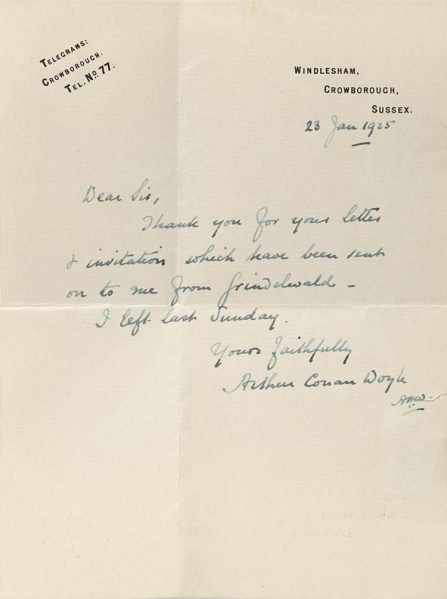 TELEGRAMS:
CROWBOROUGH.
TEL. No 77.
WINDLESHAM,
CROWBOROUGH,
SUSSEX.
23 Jan 1925
Dear Sir,
Thank you for your letter
& invitation which have been sent
on to me from Grindelwald –
I left last Sunday.
Yours faithfully
Arthur Conan Doyle